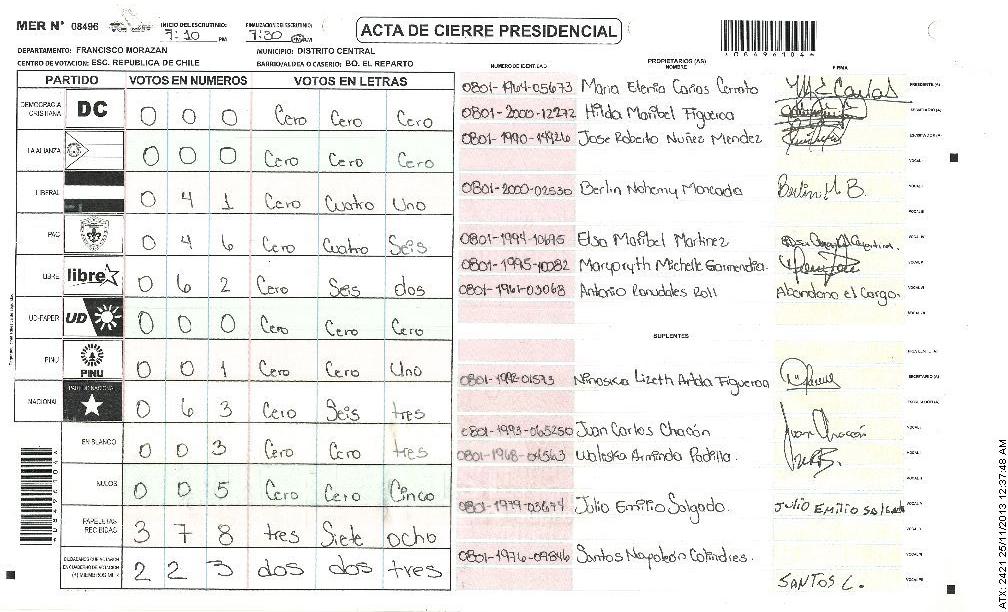 MER N° 08496
INICIO DEL ESCRUTINIO:
7:10 PM
FINALIZACION DEL ESCRUTINIO:
7:30 PM
ACTA DE CIERRE PRESIDENCIAL
DEPARTAMENTO: FRANCISCO MORAZAN
MUNICIPIO: DISTRITO CENTRAL
CENTRO DE VOTACION: ESC. REPUBLICA DE CHILE
BARRIO/ALDEA O CASERIO: BO. EL REPARTO
PARTIDO VOTOS EN NUMEROS VOTOS EN LETRAS
DEMOCRACIA CRISTIANA DC 0 0 0 Cero Cero Cero
LA ALIANZA 0 0 0 Cero Cero Cero
LIBERAL 0 4 1 Cero Cuatro Uno
PAC 0 4 6 Cero Cuatro Seis
LIBRE libre 0 6 2 Cero Seis dos
UD-FAPER UD 0 0 0 Cero Cero Cero
PINU PINU 0 0 1 Cero Cero Uno
NACIONAL PARTIDO NACIONAL 0 6 3 Cero Seis tres
EN BLANCO 0 0 3 Cero Cero tres
NULOS 0 0 5 Cero Cero Cinco
PAPELETAS RECIBIDAS 3 7 8 tres Siete ocho
2 2 3 dos dos tres
NUMERO DE IDENTIDAD PROPIETARIOS (AS) NOMBRE FIRMA
0801-1964-05673 Maria Elena Carias Cerrato M E Carias PRESIDENTE (A)
0801-2000-12272 Hilda Maribel Figueroa SECRETARIO (A)
0801-1990-19926 Jose Roberto Nuñez Mendez ESCRUTADOR (A)
VOCAL I
0801-2000-02530 Berlin Nohemy Moncada Berlin M B. VOCAL II
VOCAL III
0801-1994-10695 Elsa Maribel Martinez VOCAL IV
0801-1995-10082 Michelle Garmendia VOCAL V
0801-1961-03068 Antonio Abandono el Cargo. VOCAL VI
SUPLENTES
0801-1992-01573 Ninoska Lizeth Figueroa SECRETARIO (A)
0801-1993-065250 Juan Carlos Chacón Juan Chacón
0801-1968-04563 Waleska Armida Padilla
0801-1979-03674 Julio Emilio Salgado. JULIO EMILIO SALGADO
0801-1976-09846 Santos Napoleón Colindres. SANTOS C.
ATX: 2421 25/11/2013 12:37:48 AM